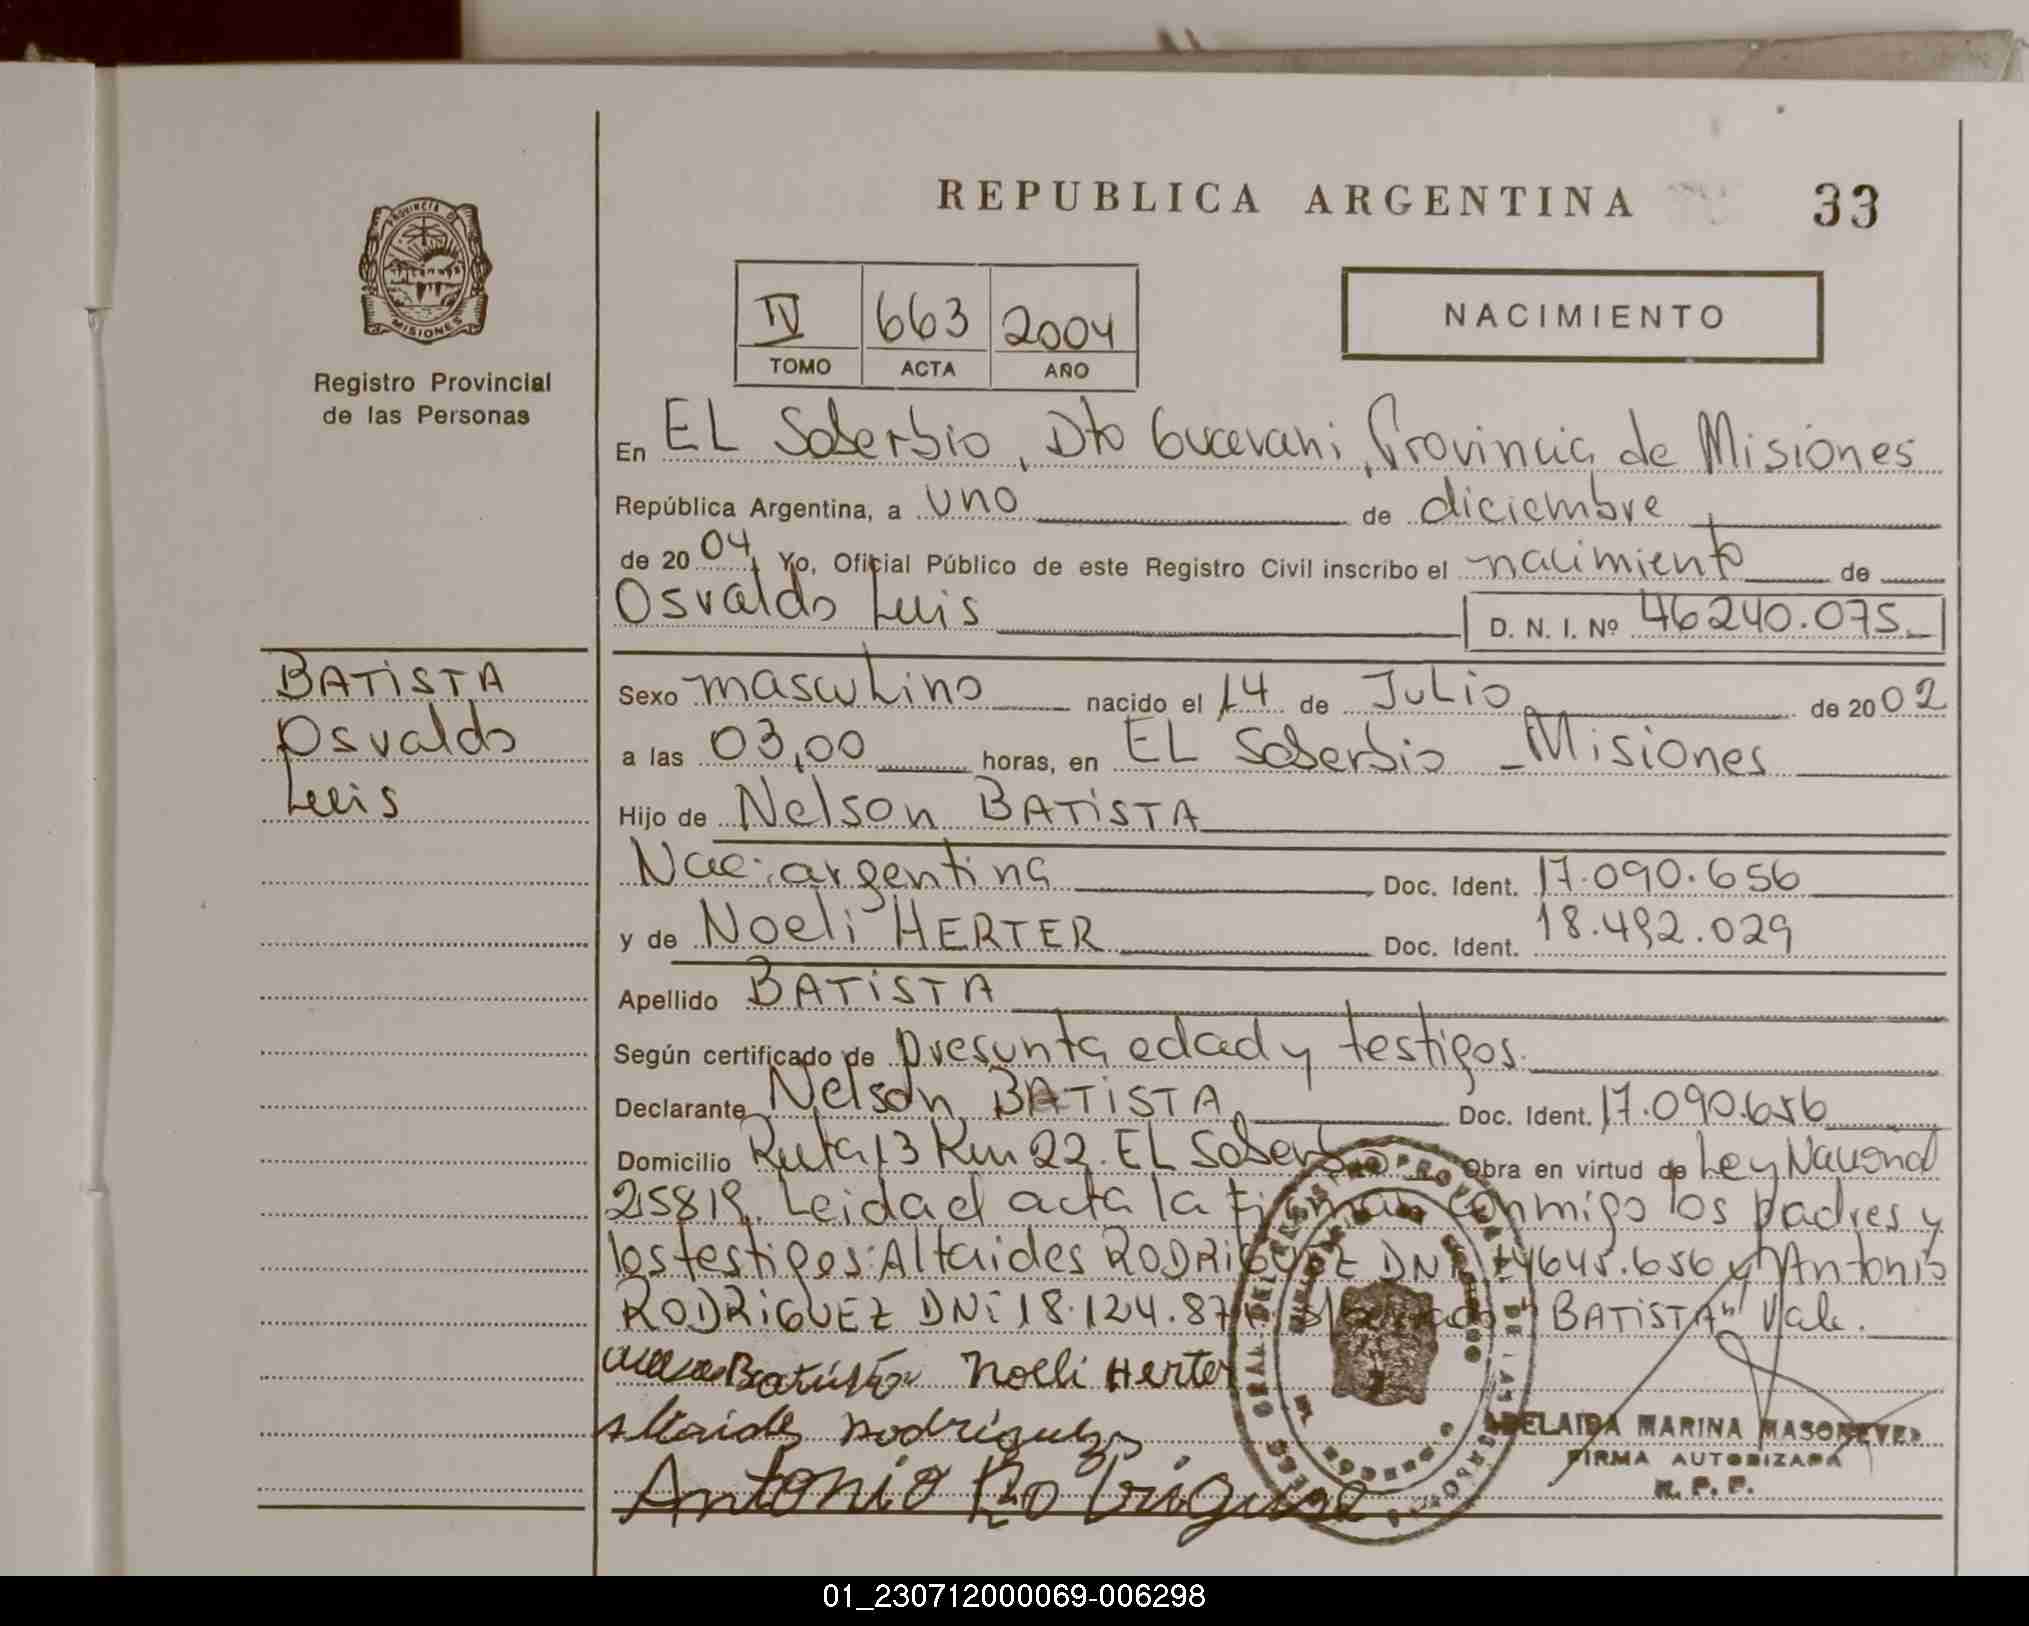 REPUBLICA ARGENTINA 33
PROVINCIA DE
MISIONES
Registro Provincial
de las Personas
IV 663 2004
TOMO ACTA AÑO
NACIMIENTO
En EL Soberbio, Dto Guarani, Provincia de Misiones
República Argentina, a uno de diciembre
de 2004, Yo, Oficial Público de este Registro Civil inscribo el nacimiento de
Osvaldo Luis D. N. I. Nº 46240.075.
BATISTA
Osvaldo
Luis
Sexo masculino nacido el 14 de Julio de 2002
a las 03,00 horas, en EL Soberbio - Misiones
Hijo de Nelson BATISTA
Nac: argentina Doc. Ident. 17.090.656
y de Noeli HERTER Doc. Ident. 18.492.029
Apellido BATISTA
Según certificado de presunta edad y testigos.
Declarante Nelson BATISTA Doc. Ident. 17.090.656
Domicilio Ruta 13 Km 22. EL Soberbio Obra en virtud de Ley Nacional
25819. Leida el acta la firman conmigo los padres y
los testigos: Altaides RODRIGUEZ DNI 645.656 y Antonio
RODRIGUEZ DNI 18.124.87 "BATISTA" Vale.
Batista Noeli Herter
Altaides Rodriguez
Antonio Rodriguez
ADELAIDA MARINA
FIRMA AUTORIZADA
R. P. P.
01_230712000069-006298